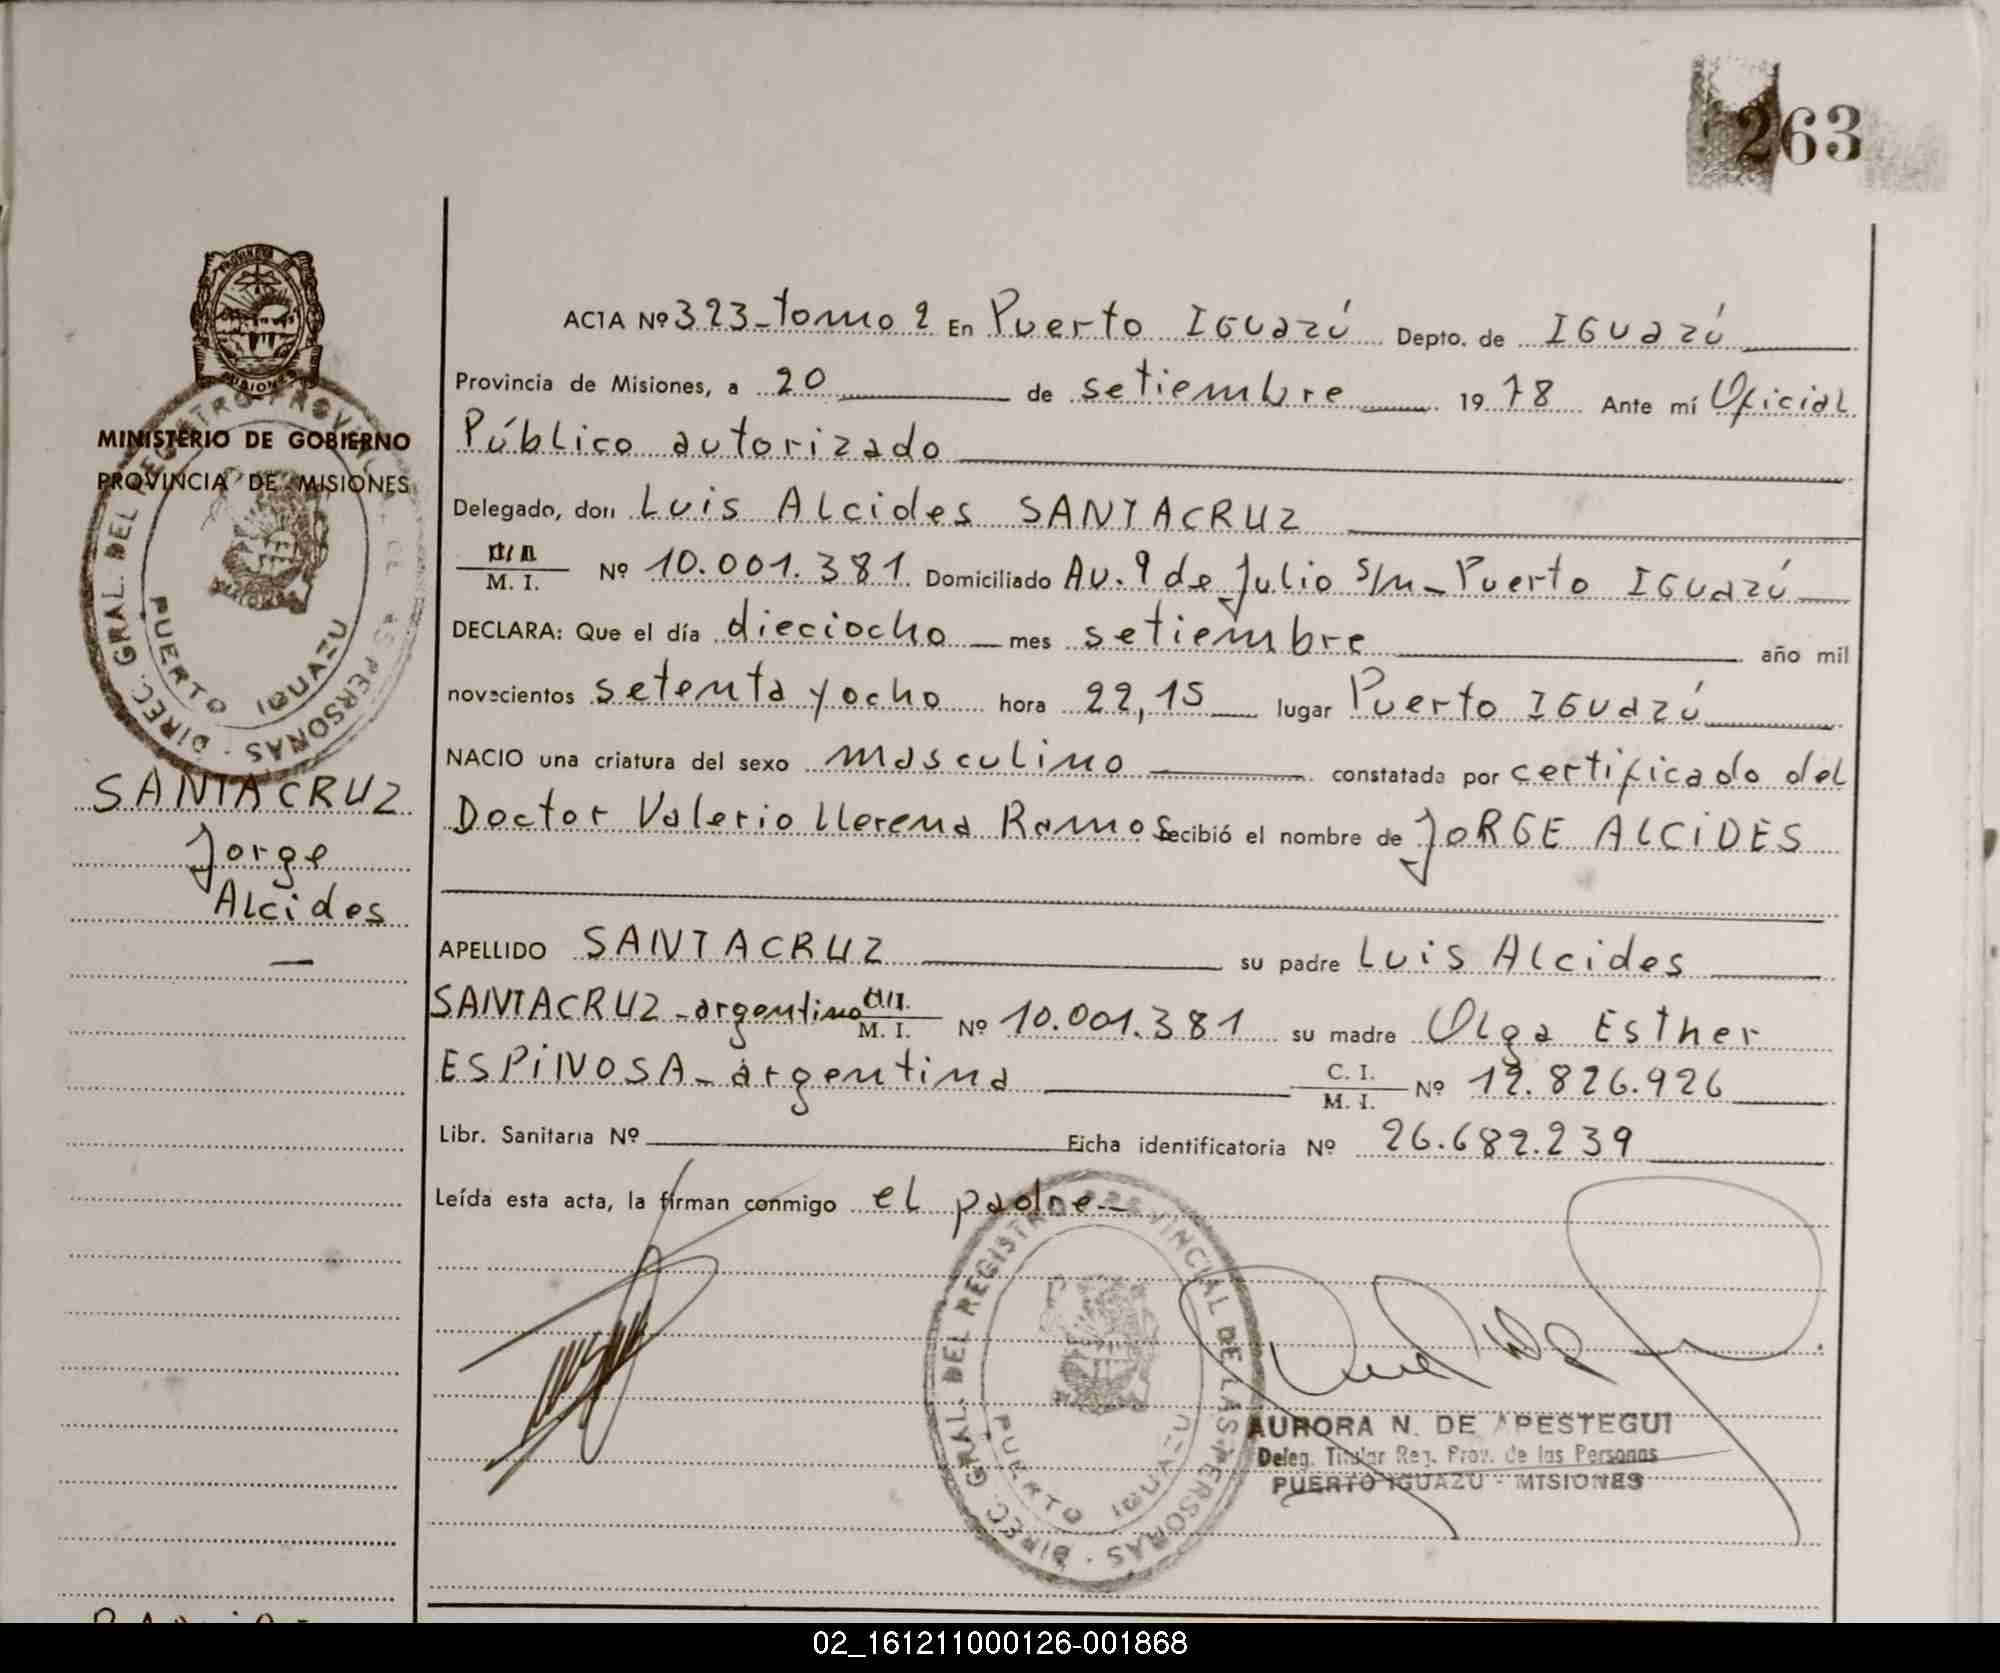 263
PROVINCIA D
MISIONES
MINISTERIO DE GOBIERNO
PROVINCIA DE MISIONES
DIREC. GRAL. DEL REGISTRO PROVINCIAL DE LAS PERSONAS
PUERTO IGUAZU
SANTACRUZ
Jorge
Alcides
ACTA Nº 323 - tomo 2 En Puerto IGuazú Depto. de IGuazú
Provincia de Misiones, a 20 de setiembre 1978 Ante mí Oficial
Público autorizado
Delegado, don Luis Alcides SANTACRUZ
M. I. Nº 10.001.381 Domiciliado Av. 9 de Julio s/n - Puerto IGuazú
DECLARA: Que el día dieciocho mes setiembre año mil
novecientos setenta y ocho hora 22,15 lugar Puerto IGuazú
NACIO una criatura del sexo masculino constatada por certificado del
Doctor Valerio Llerena Ramos recibió el nombre de JORGE ALCIDES
APELLIDO SANTACRUZ su padre Luis Alcides
SANTACRUZ - argentino M. I. Nº 10.001.381 su madre Olga Esther
ESPINOSA - argentina C. I. M. I. Nº 12.826.926
Libr. Sanitaria Nº Ficha identificatoria Nº 26.682.239
Leída esta acta, la firman conmigo el padre -
DIREC. GRAL. DEL REGISTRO PROVINCIAL DE LAS PERSONAS
PUERTO IGUAZU
AURORA N. DE APESTEGUI
Deleg. Titular Reg. Prov. de las Personas
PUERTO IGUAZU - MISIONES
02_161211000126-001868